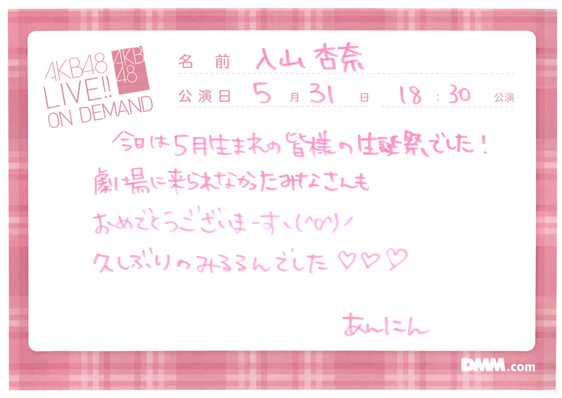 AKB48
LIVE!!
ON DEMAND
AKB
48
名前 入山杏奈
公演日 5月31日 18:30 公演
今日は5月生まれの皆様の生誕祭でした!
劇場に来られなかったみなさんも
おめでとうございまーすヽ(^o^)ノ
久しぶりのみるるんでした♡♡♡
あんにん
DMM.com